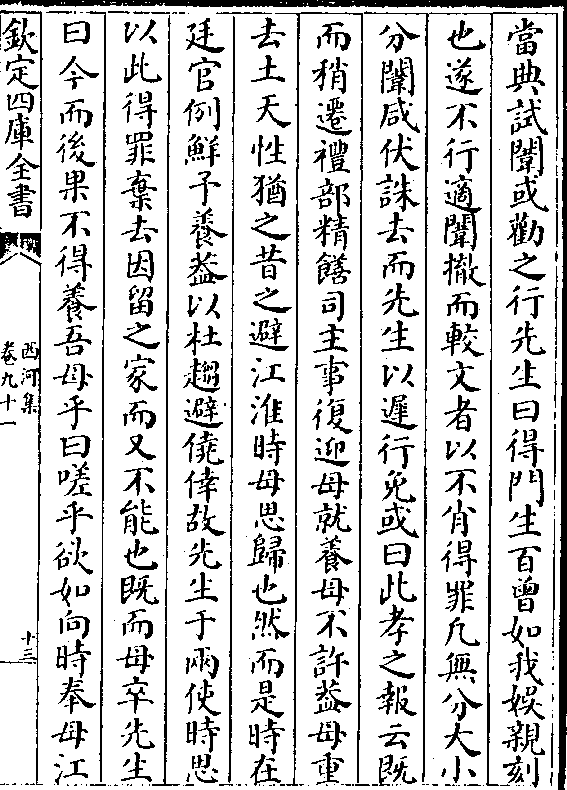 當典試闈或勸之行先生曰得門生百曾如我娛親刻
也遂不行適闈撤而較文者以不肖得罪凡無分大小
分闈咸伏誅去而先生以遲行免或曰此孝之報云既
而稍遷禮部精饍司主事復迎母就養母不許葢母重
去土天性猶之昔之避江淮時母思歸也然而是時在
廷官例鮮予養葢以杜趨避僥倖故先生于兩使時思
以此得罪棄去因留之家而又不能也既而母卒先生
曰今而後果不得養吾母乎曰嗟乎欲如向時奉母江
欽定四庫全書
西河集
卷九十一
十三